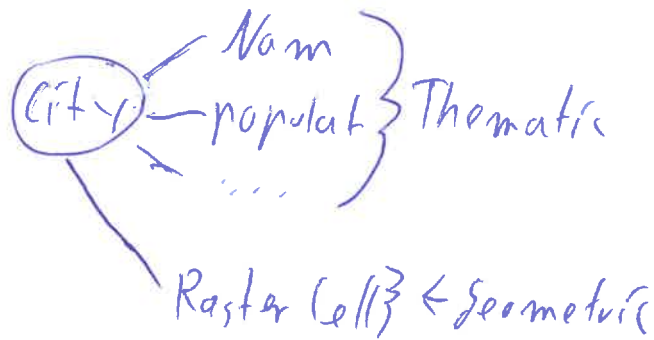 Nam
City populat } Thematic
....
Raster Cell } ← Geometric